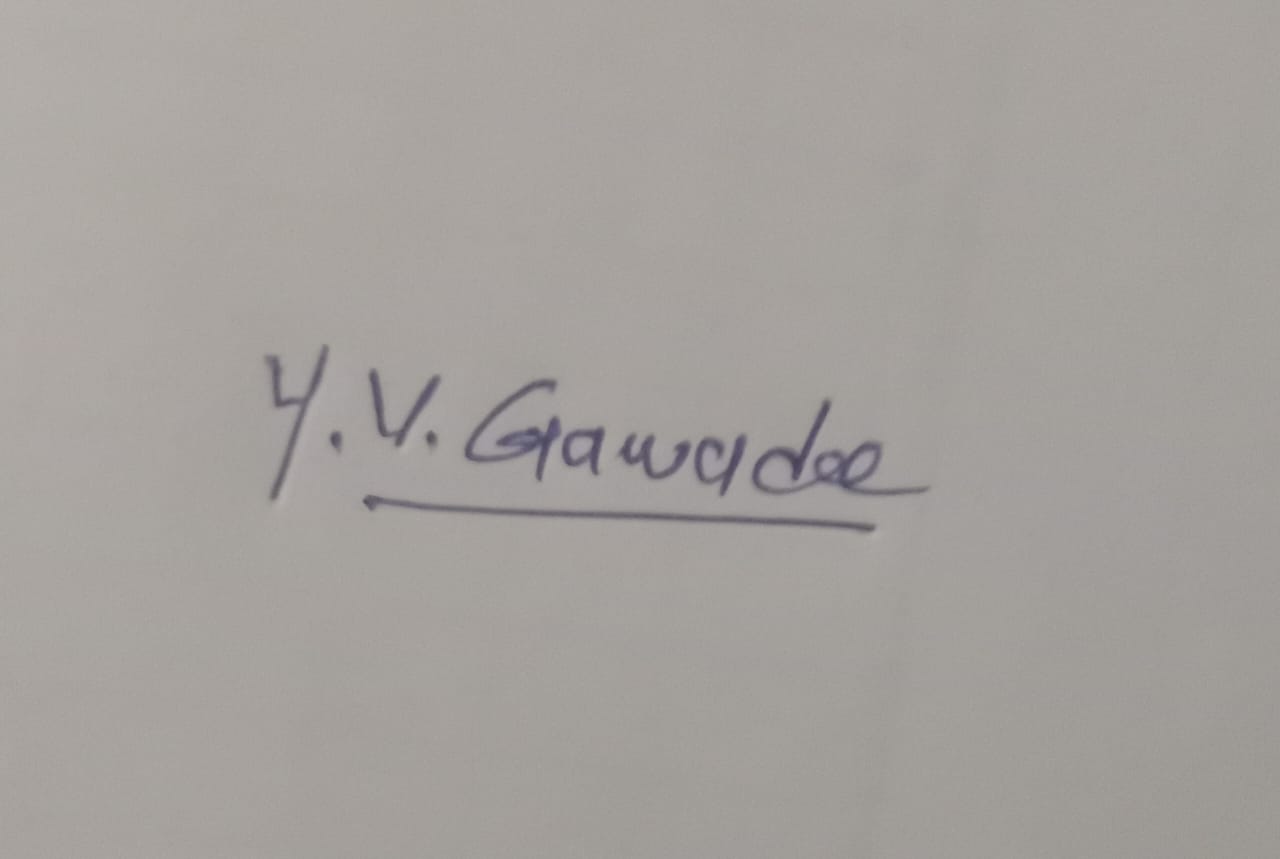 Y. V. Gawade